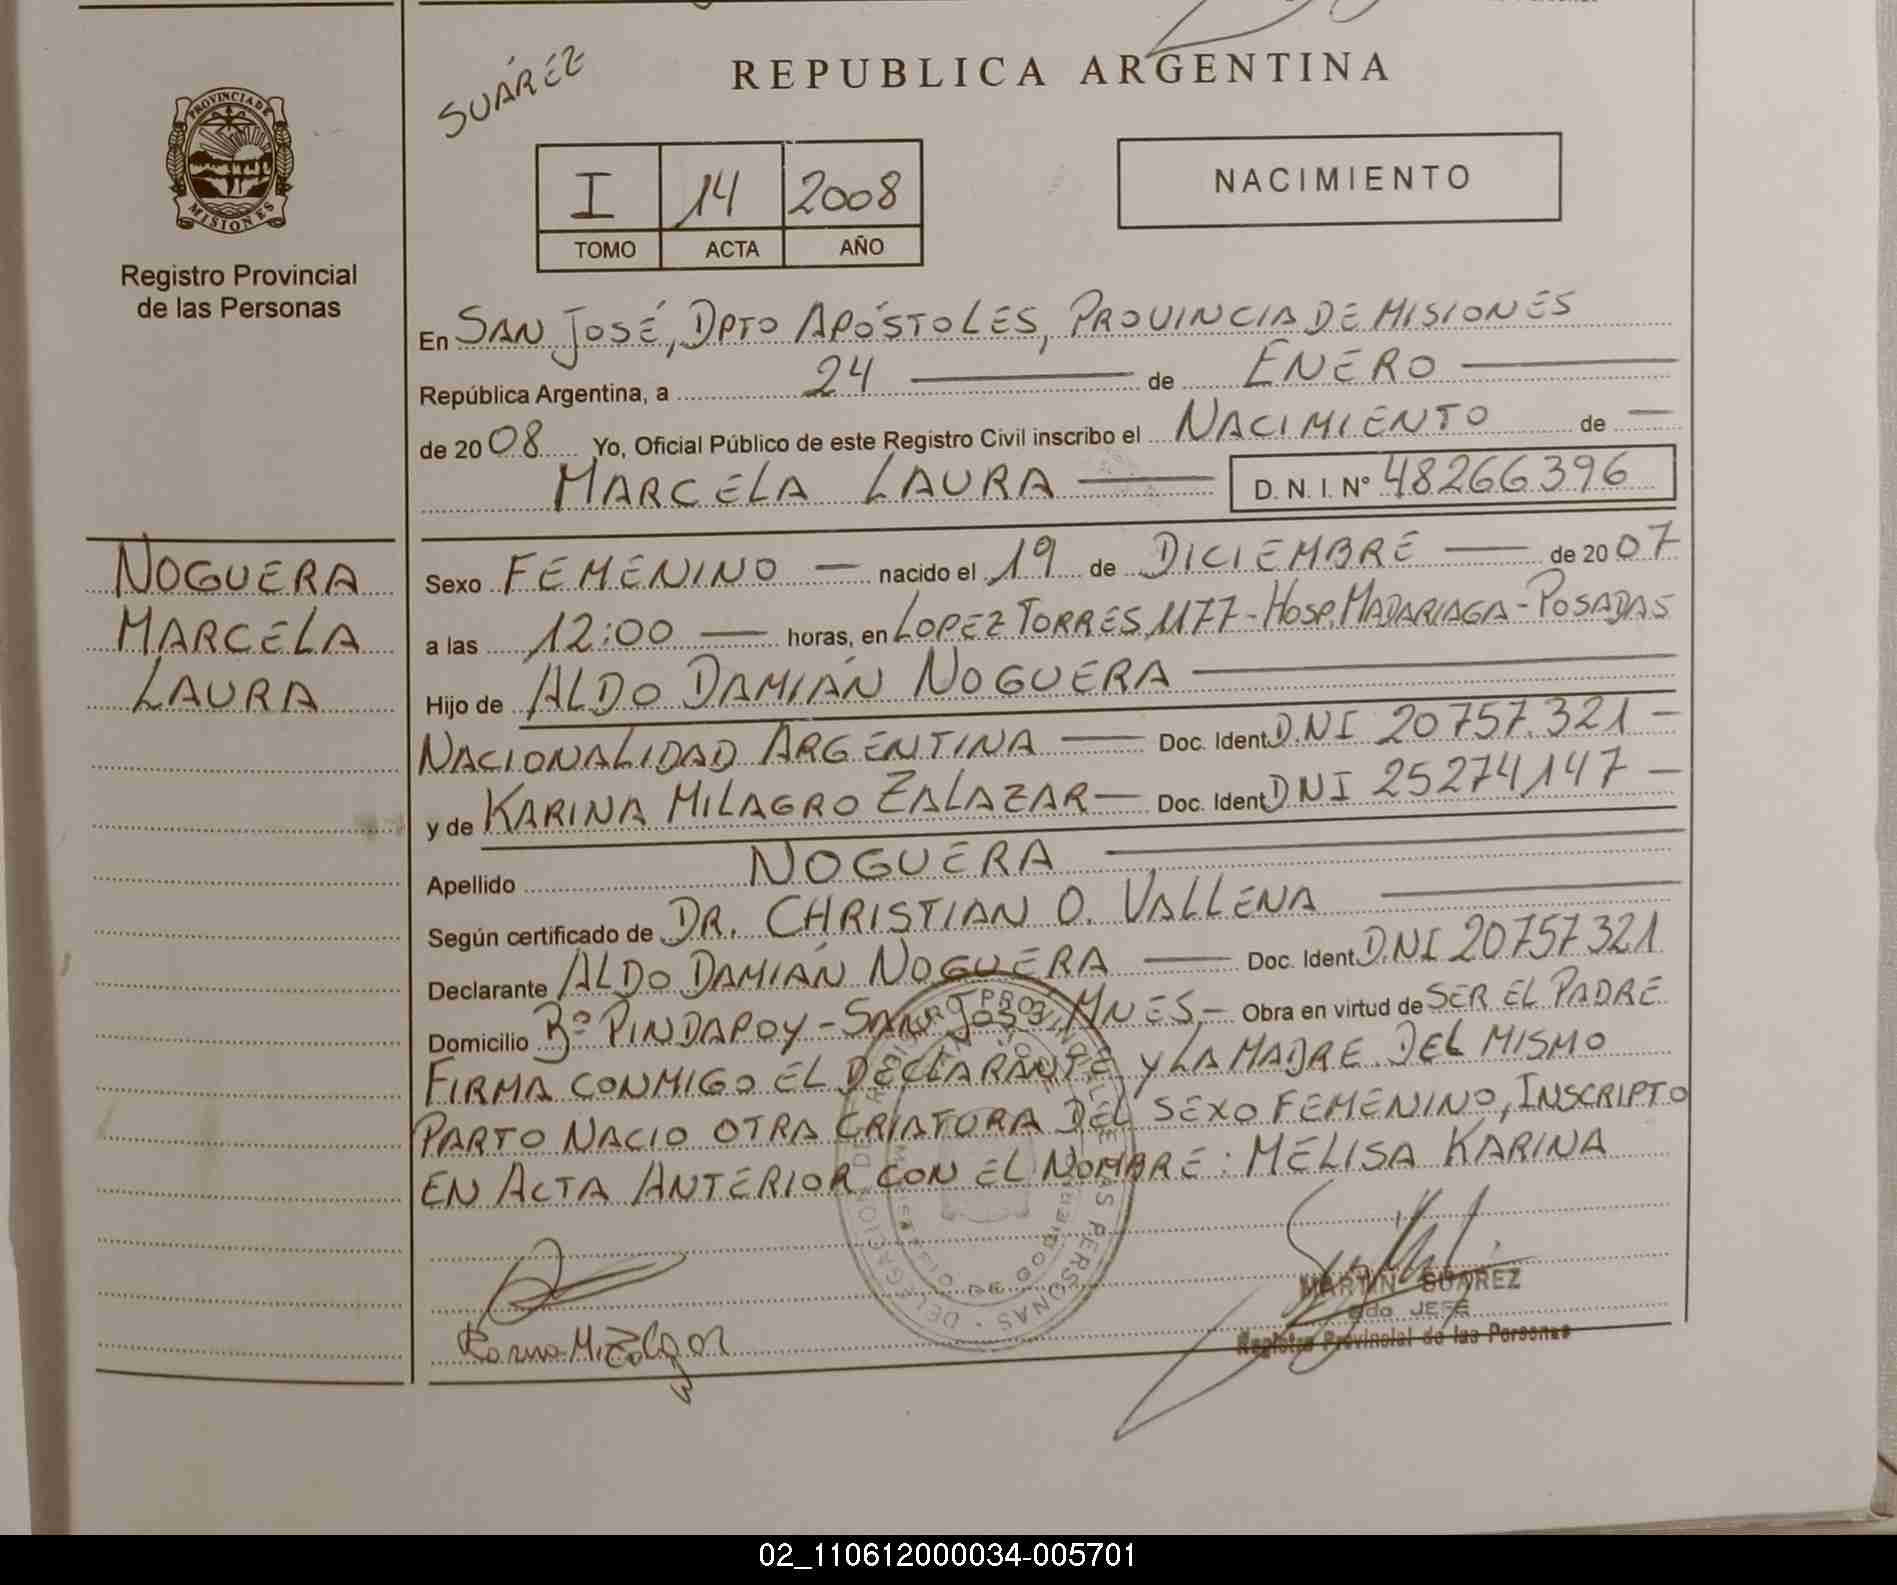 SUÁREZ
REPUBLICA ARGENTINA
PROVINCIA DE
MISIONES
Registro Provincial
de las Personas
I 14 2008
TOMO ACTA AÑO
NACIMIENTO
En SAN JOSÉ, DPTO APÓSTOLES, PROVINCIA DE MISIONES
República Argentina, a 24 de ENERO
de 2008 Yo, Oficial Público de este Registro Civil inscribo el NACIMIENTO de
MARCELA LAURA D. N. I. Nº 48266396
NOGUERA
MARCELA
LAURA
Sexo FEMENINO nacido el 19 de DICIEMBRE de 2007
a las 12:00 horas, en LOPEZ TORRES 1177 - HOSP. MADARIAGA - POSADAS
Hijo de ALDO DAMIÁN NOGUERA
NACIONALIDAD ARGENTINA Doc. Ident DNI 20757.321 -
y de KARINA MILAGRO ZALAZAR Doc. Ident DNI 25274147 -
Apellido NOGUERA
Según certificado de DR. CHRISTIAN O. VALLENA
Declarante ALDO DAMIÁN NOGUERA Doc. Ident DNI 20757321
Domicilio Bº PINDAPOY - SAN JOSÉ, MNES.- Obra en virtud de SER EL PADRE
FIRMA CONMIGO EL DECLARANTE Y LA MADRE. DEL MISMO
PARTO NACIO OTRA CRIATURA DEL SEXO FEMENINO, INSCRIPTO
EN ACTA ANTERIOR CON EL NOMBRE: MELISA KARINA
MARTIN SUAREZ
JEFE
Registro Provincial de las Personas
02_110612000034-005701